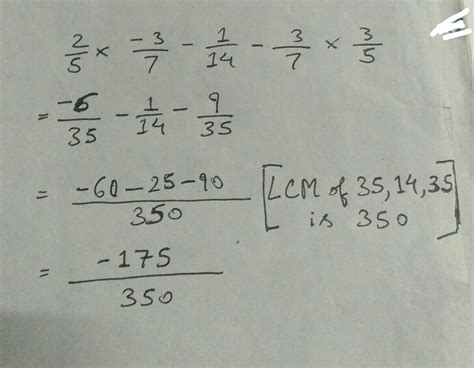 2/5 × -3/7 - 1/14 - 3/7 × 3/5
= -6/35 - 1/14 - 9/35
= -60-25-90/350 [LCM of 35,14,35 is 350]
= -175/350